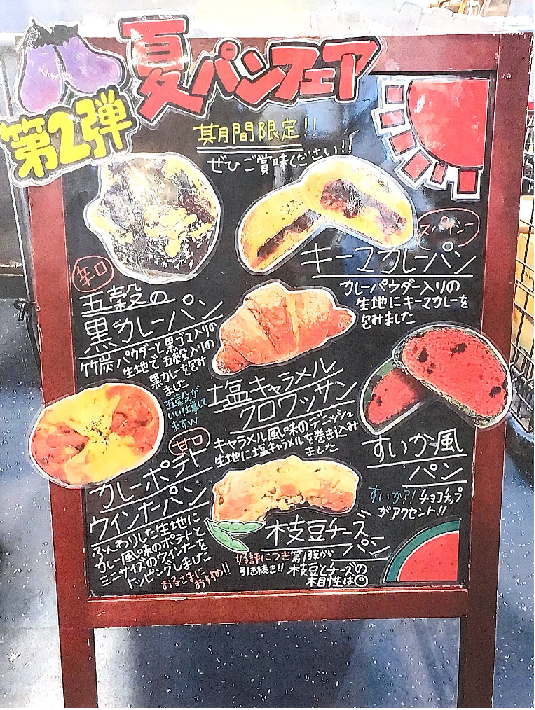 夏パンフェア
第2弾
期間限定!!
ぜひご賞味ください!!
スパイシー
キーマカレーパン
カレーパウダー入りの
生地にキーマカレーを
包みました
辛口
五穀の
黒カレーパン
竹炭パウダーと黒ゴマ入りの
生地で五穀入りの
黒カレーを包み
ました
塩キャラメル
クロワッサン
キャラメル風味のデニッシュ
生地に塩キャラメルを巻き込み
ました
すいか風
パン
すいか?!チョコチップ
がアクセント!!
甘口
カレーポテト
ウインナーパン
ふんわりした生地に
カレー風味のポテトと
ミニサイズのウインナーを
トッピングしました
おすすめ!!
枝豆チーズ
パン
好評につき第1弾から
引き続き!!
枝豆とチーズの
相性は◎